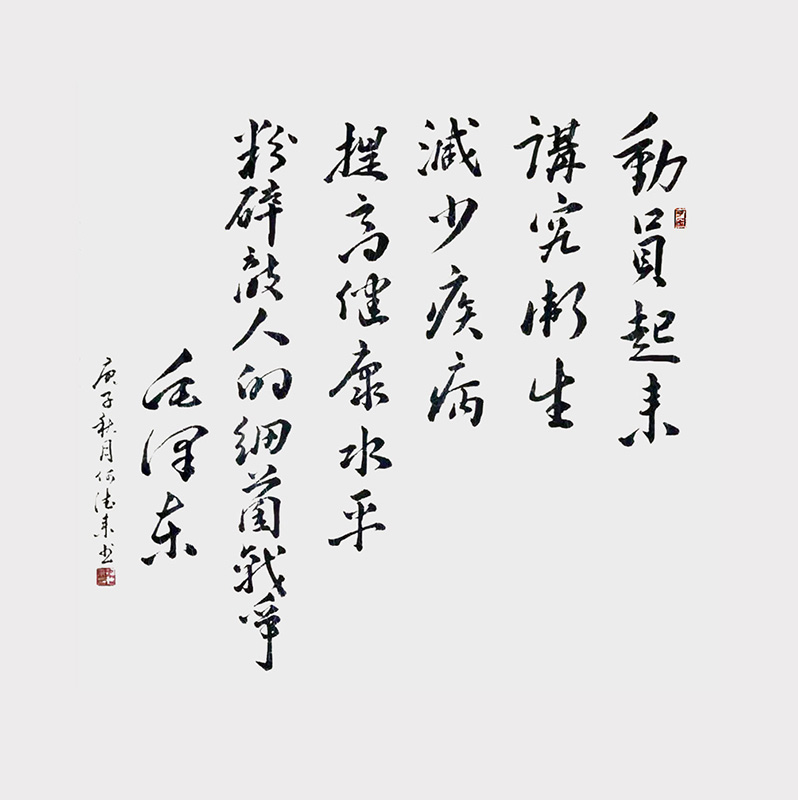 動員起来
講究衛生
減少疾病
提高健康水平
粉碎敵人的細菌戰爭
毛澤东
庚子秋月何德来书